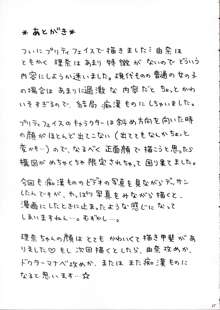 *あとがき*
ついにプリティフェイスで描きました!由奈は
ともかく理奈はあまり好敵がないのでどういう
内容にしようか迷いました。現代ものの普通の女の子
の場合はあまり過激な内容だとちょっとかわい
そすぎるので、結局痴漢ものにしちゃいました。
プリティフェイスのキャラクターは斜め方向を向いた時
の顔がほとんど出てこない(出ててもなんかちょっと
変かも…)ので、なるべく正面顔で描こうと思ったら
構図がめちゃくちゃ限定されちゃって困り果てました。
今回も痴漢もののビデオの写真を見ながらデッサン
したんですが、やっぱり写真をみながら描くと、
漫画にしたときに止まったような感じになって
しまいますねん…。むずかしー。
理奈ちゃんの顔はとてもかわいくて描き甲斐があ
りました♡もし次回描くとしたら、由奈攻めか、
ドクターマナベ攻めか、またはまた痴漢ものに
なると思います…☆